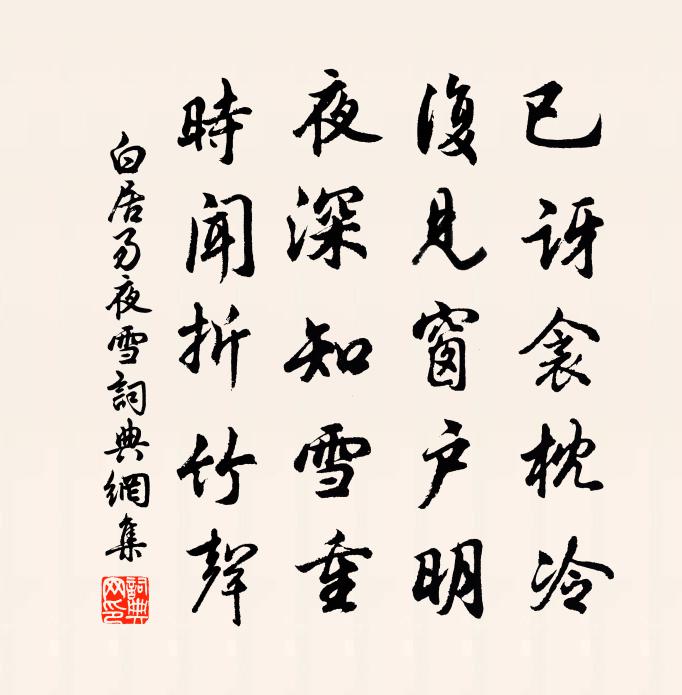 已訝衾枕冷
復見窗户明
夜深知雪重
時聞折竹聲
白居易夜雪詞典網集
詞典網印